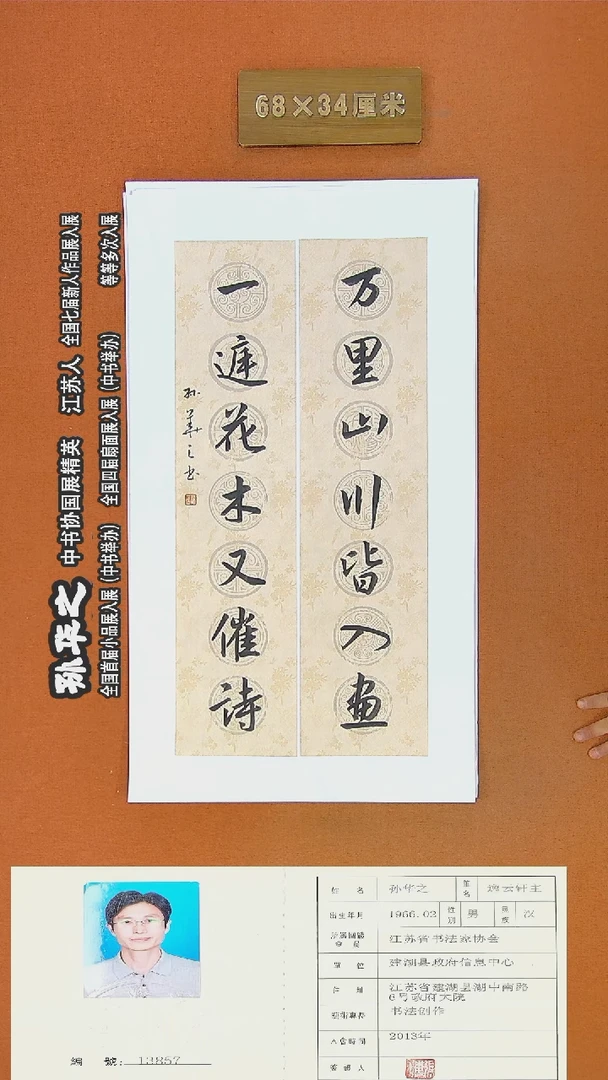 68×34厘米
万里山川皆入画
一庭花木又催诗
孙华之书
孙华之 中书协国展精英 江苏人 全国七届新人作品展入展
全国首届小品展入展(中书举办) 全国四届扇面展入展(中书举办) 等等多次入展
姓名 孙华之 笔名 逸云轩主
出生年月 1966.02 性别 男 民族 汉
江苏省书法家协会
单位 建湖县政府信息中心
住址 江苏省建湖县湖中南路
6号政府大院
书法创作
入会时间 2013年
编號:13857